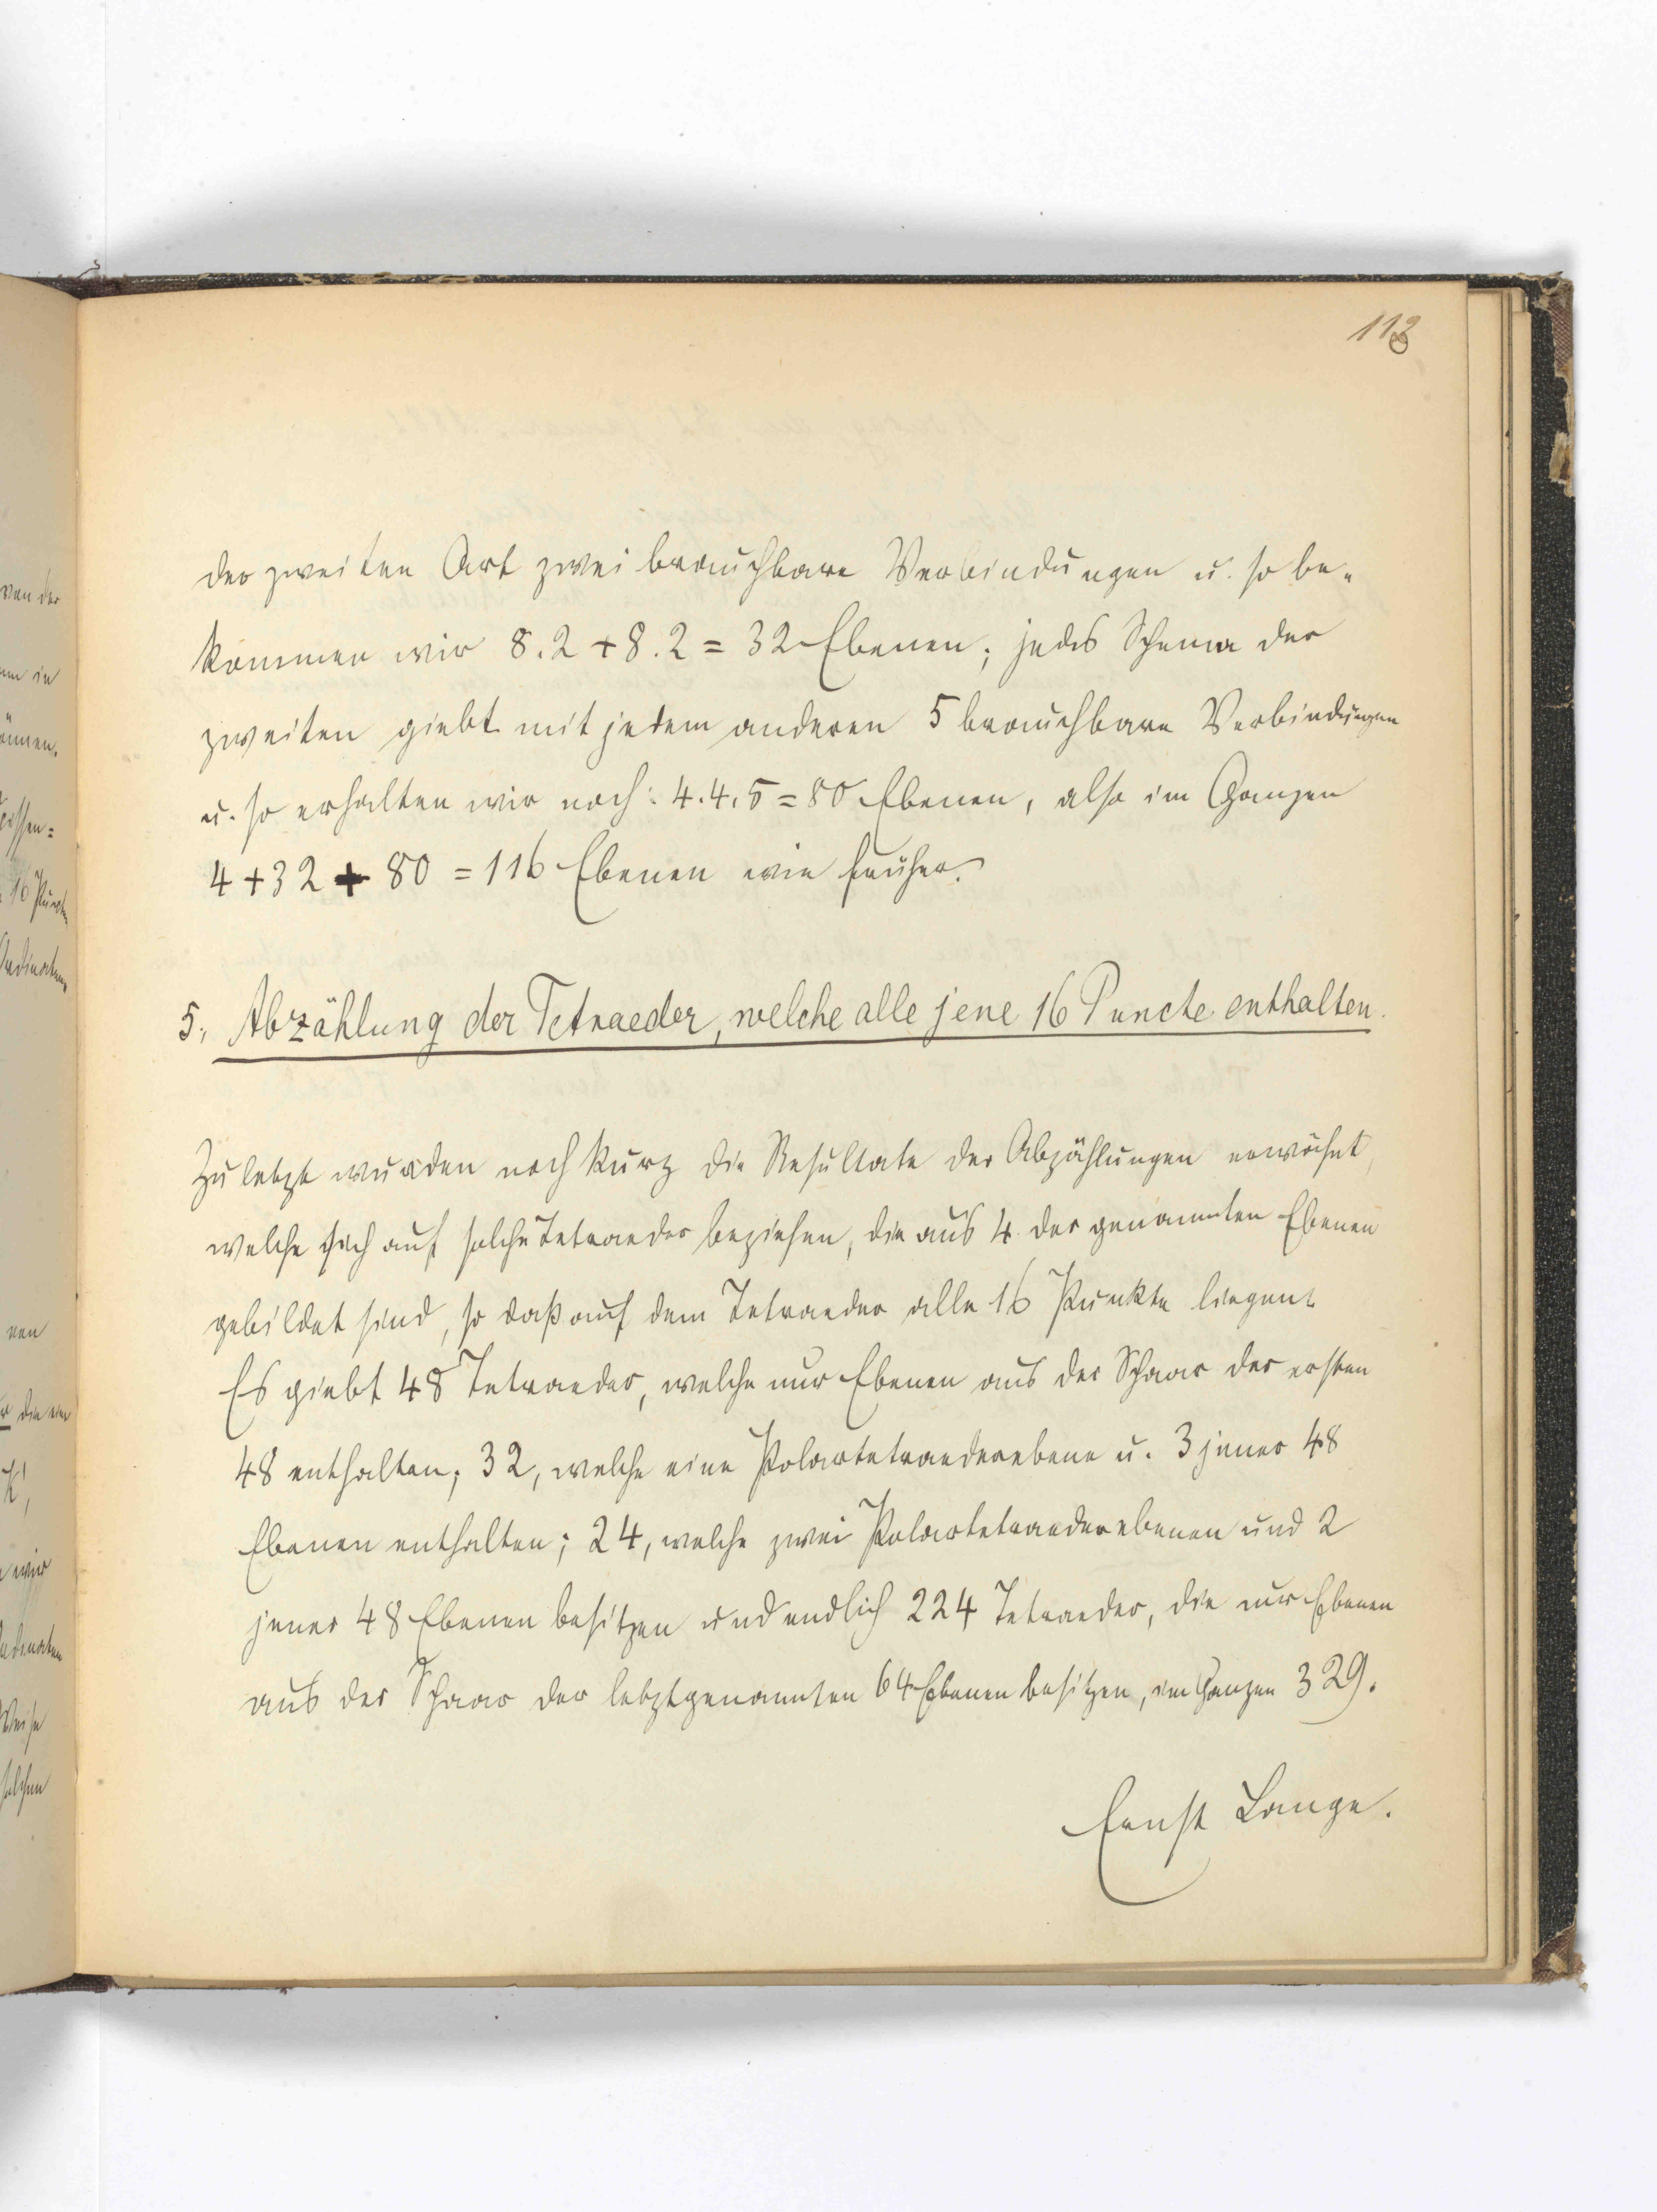 112
der zweiten Art zwei brauchbare Verbindungen u. so be-
kommen wir 8.2 + 8.2 = 32 Ebenen; jedes Schema der
zweiten giebt mit jedem anderen 5 brauchbare Verbindungen
u. so erhalten wir noch: 4.4.5 = 80 Ebenen, also im Ganzen
4 + 32 + 80 = 116 Ebenen wie früher.
5. Abzählung der Tetraeder, welche alle jene 16 Puncte enthalten.
Zuletzt wurden noch kurz die Resultate der Abzählungen erwähnt,
welche sich auf solche Tetraeder beziehen, die aus 4 der genannten Ebenen
gebildet sind, so daß auf dem Tetraeder alle 16 Punkte liegen.
Es giebt 48 Tetraeder, welche nur Ebenen aus der Schaar der ersten
48 enthalten; 32, welche eine Polartetraederebene u. 3 jener 48
Ebenen enthalten; 24, welche zwei Polartetraederebenen und 2
jener 48 Ebenen besitzen und endlich 224 Tetraeder, die nur Ebenen
aus der Schaar der letztgenannten 64 Ebenen besitzen, im Ganzen 329.
Ernst Lange.